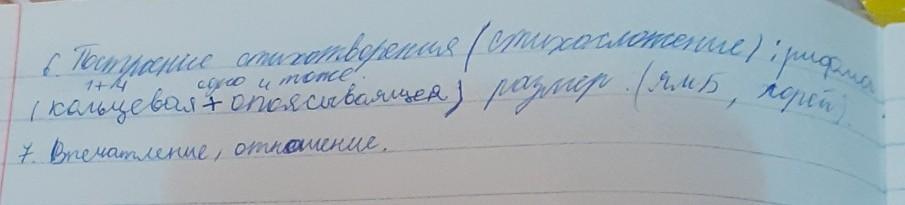 6. Построение стихотворения (стихосложение): рифма
1+4 одно и тоже.
(кольцевая + опоясывающая) размер. (ямб, хорей).
7. Впечатление, отношение.